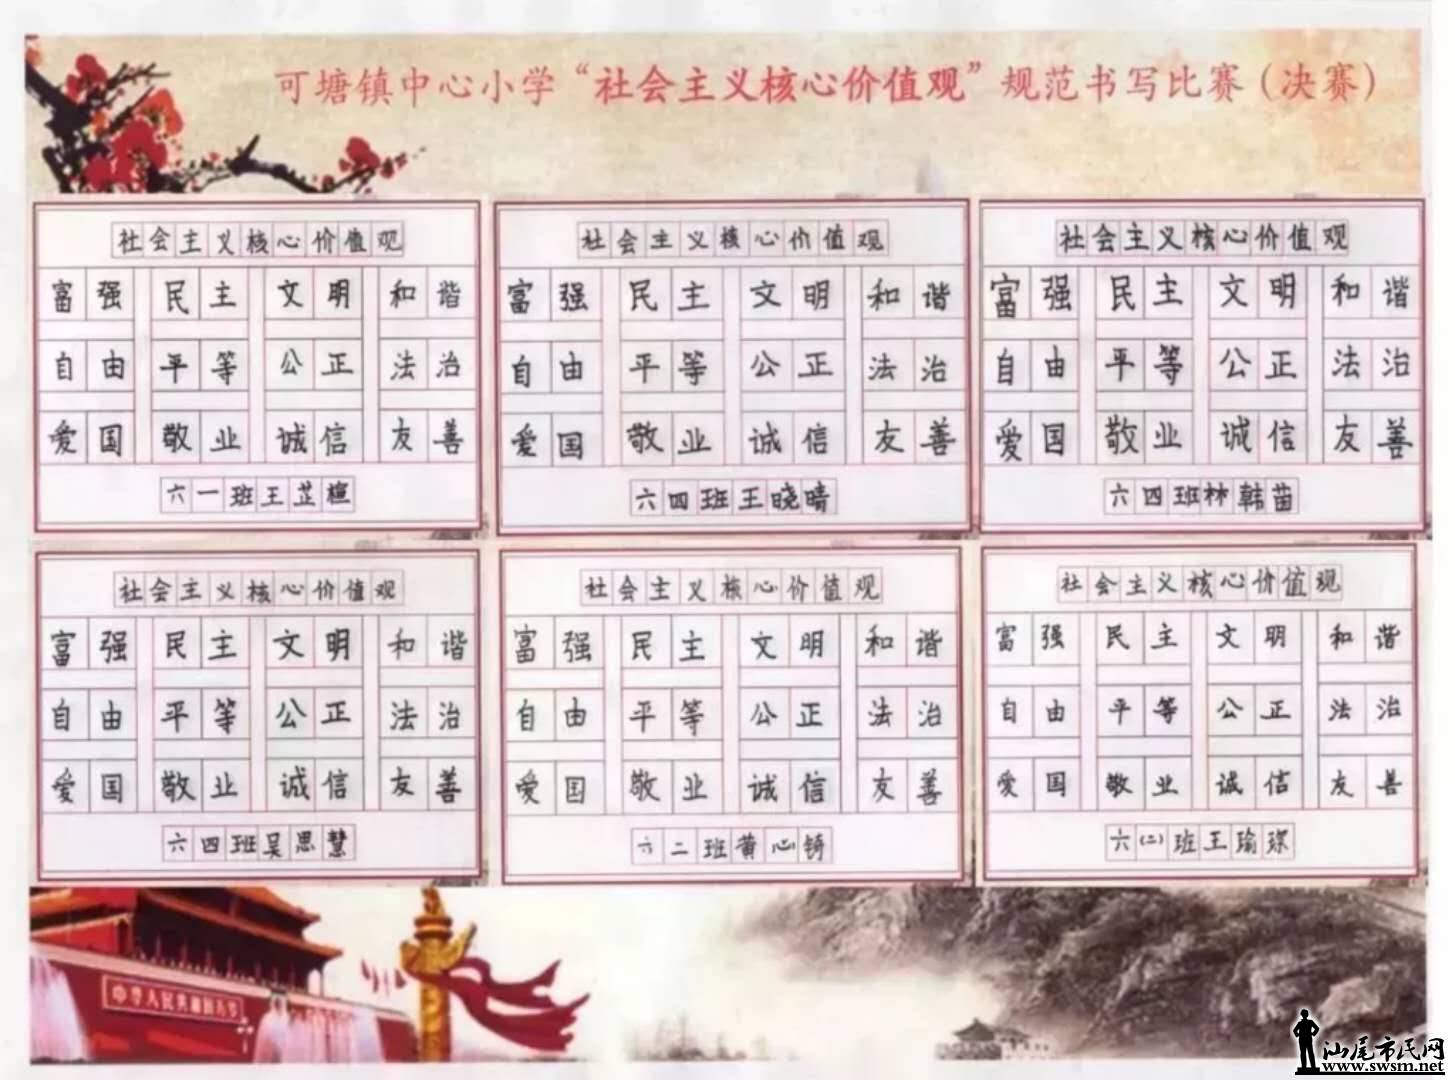 可塘镇中心小学“社会主义核心价值观”规范书写比赛(决赛)
社会主义核心价值观
富强 民主 文明 和谐
自由 平等 公正 法治
爱国 敬业 诚信 友善
六一班王芷楦
社会主义核心价值观
富强 民主 文明 和谐
自由 平等 公正 法治
爱国 敬业 诚信 友善
六四班王晓晴
社会主义核心价值观
富强 民主 文明 和谐
自由 平等 公正 法治
爱国 敬业 诚信 友善
六四班林韩苗
社会主义核心价值观
富强 民主 文明 和谐
自由 平等 公正 法治
爱国 敬业 诚信 友善
六四班吴思慧
社会主义核心价值观
富强 民主 文明 和谐
自由 平等 公正 法治
爱国 敬业 诚信 友善
六二班黄心锜
社会主义核心价值观
富强 民主 文明 和谐
自由 平等 公正 法治
爱国 敬业 诚信 友善
六(二)班王瑜琛
中华人民共和国万岁
汕尾市民网
www.swsm.net